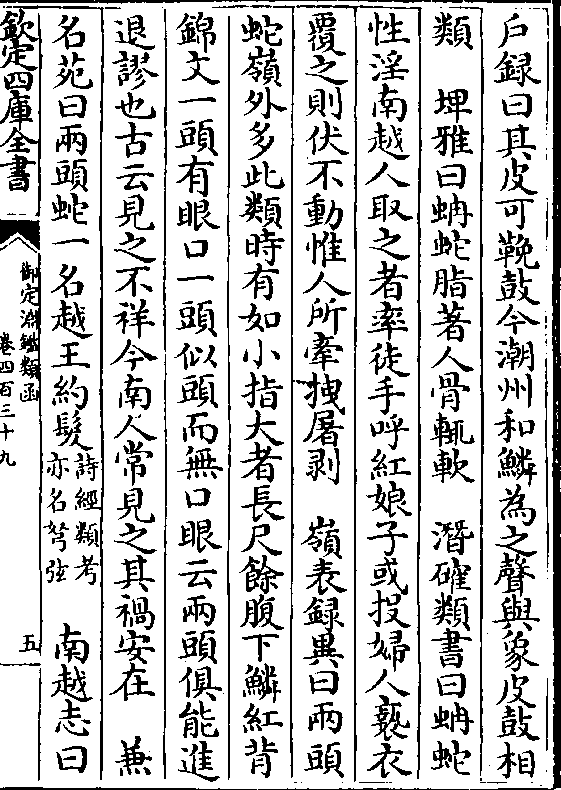 戶録曰其皮可鞔鼓今潮州和鱗為之聲與象皮鼓相
類　埤雅曰蚺蛇脂著人骨輒軟　潛確類書曰蚺蛇
性淫南越人取之者率徒手呼紅娘子或投婦人褻衣
覆之則伏不動惟人所牽拽屠剥　嶺表録異曰兩頭
蛇嶺外多此類時有如小指大者長尺餘腹下鱗紅背
錦文一頭有眼口一頭似頭而無口眼云兩頭俱能進
退謬也古云見之不祥今南人常見之其禍安在　兼
名苑曰兩頭蛇一名越王約髮詩經類考亦名弩弦　南越志曰
欽定四庫全書
御定淵鑑類函
卷四百三十九
五